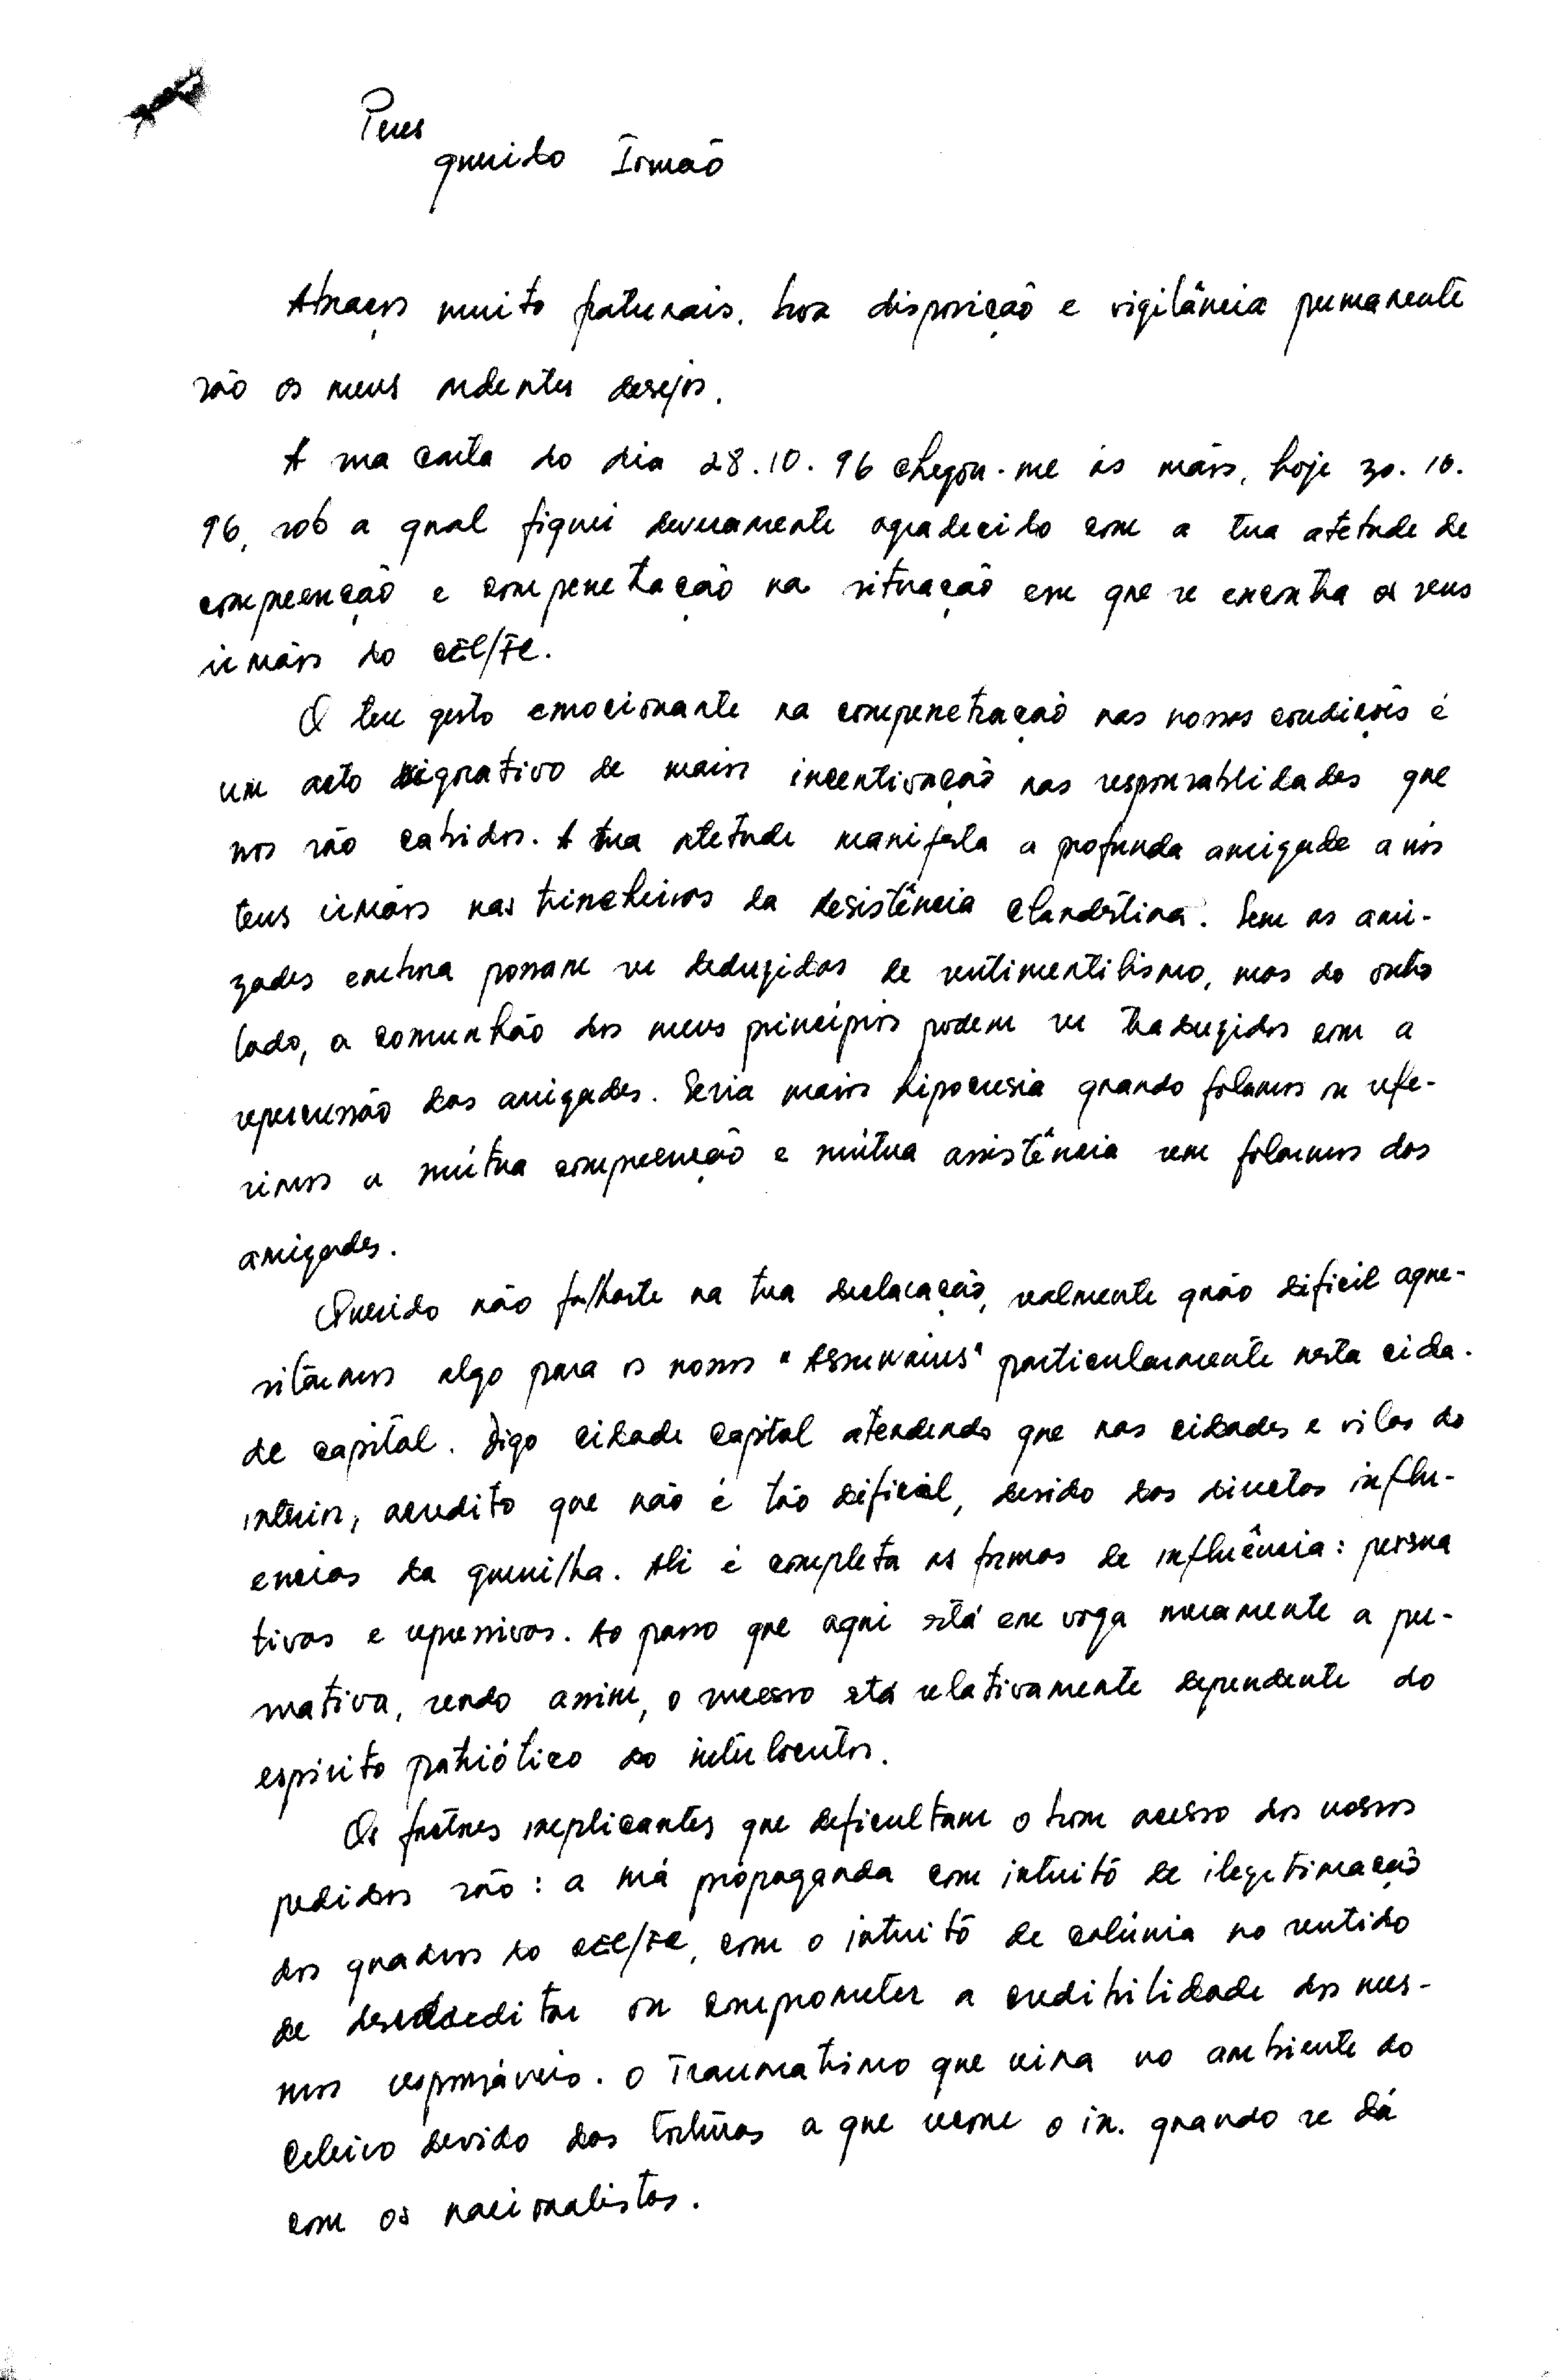 querido Irmão
Abraços muito fraternais, boa disposição e vigilância permanente
são os meus ardentes desejos.
A sua carta do dia 28.10.96 chegou-me às mãos, hoje 30.10.
96, sob a qual fiquei deveramente agradecido com a tua atetude de
compreenção e compenetração na situação em que se encontra os seus
irmãos do CEL/FC.
O teu gesto emocionante na compenetração nas nossas condições é
um acto signativo de mais incentivação nas responsablidades que
nos são cabidos. A tua atetude manifesta a profunda amizade a nós
teus irmãos nas trincheiras da Resistência Clandestina. Sem as ami-
zades embora possam ser deduzidas de sentimentilismo, mas do outro
lado, a comunhão dos meus princípios podem ser traduzidos com a
repercussão das amizades. Seria mais hipocrisia quando falamos ou refe-
rimos a mútua compreenção e mútua assistência sem falarmos das
amizades.
Querido não falhaste na tua declaração, realmente quão dificil aque-
sitármos algo para os nossos "Assuwains" particularmente nesta cida-
de capital. Digo cidade capital atendendo que nas cidades e vilas do
interior, acredito que não é tão dificial, devido das directas influ-
encias da guerrilha. Ali é completa as formas de influência: persua
tivas e repressivas. Ao passo que aqui está em voga meramente a per-
suativa, sendo assim, o sucesso está relativamente dependente do
espirito patriótico do interlocutor.
Os factores implicantes que deficultam o bom acesso dos nossos
pedidos são: a má propaganda com intuitô de ilegitimação
dos quadros do CEL/FC, com o intuitô de calúnia no sentido
de descreditar ou comprometer a credibilidade dos mes-
mos responsáveis. O traumatismo que reina no ambiente do
Celeiro devido das tortúras a que recorre o in. quando se dá
com os nacionalistas.